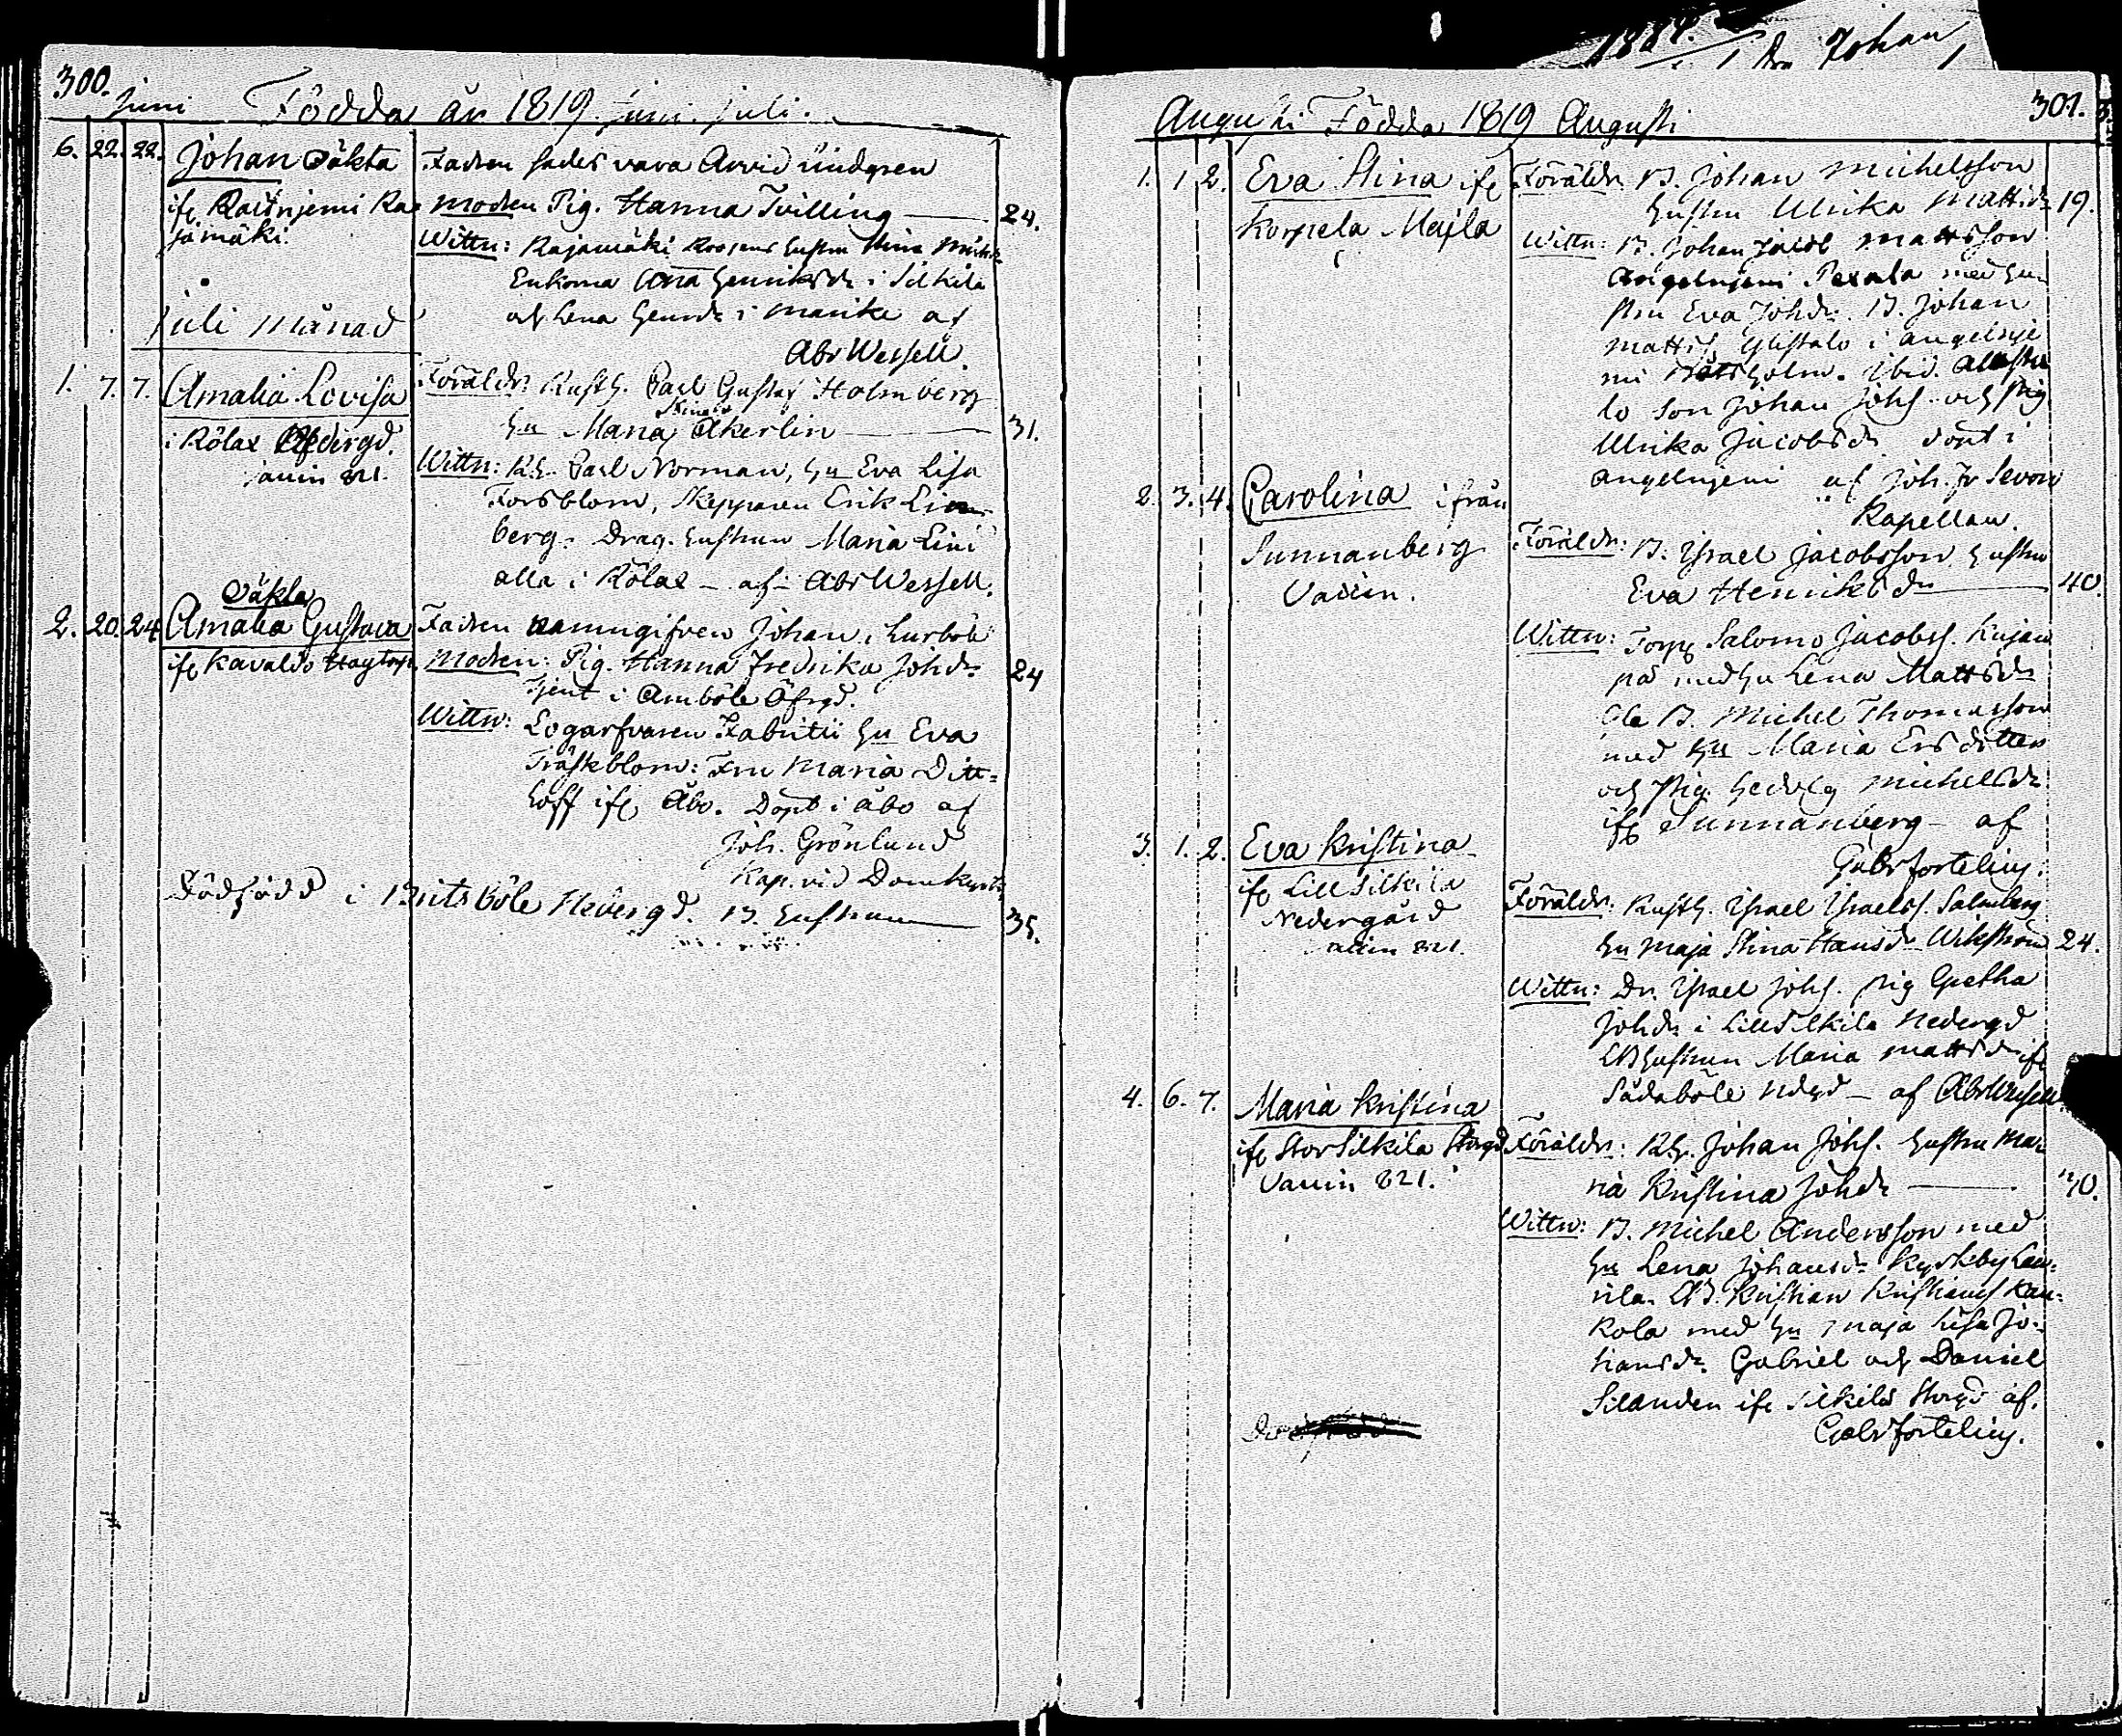 300.
juni Födda år 1819 juni. juli.
6. 22. 22. Johan oäkta
ifr Raisnjemi Ra
jamäki.
Fadren sades vara Arvid Lindgren
Modren Pig. Hanna Tvilling 24.
Wittn: Rajamäki hustru Stina
Enkorna Henriksdr i Silkila
och Lena Henrdr i Marike af
Abr Wessell.
Juli Månad
1. 7. 7. Amalia Lovisa
i Rölax
vaccin 821.
Föräldr: Rusth. Carl Gustaf Holmberg
hu Maria Stina Åkerlin 31.
Wittn: Rh. Carl Norman, hu Eva Lisa
Forsblom, Skepparen Erik Lin
berg. Drag. hustrun Maria Lini
alla i Rölax - af - Abr Wessell.
oäkta
2. 20. 24. Amalia Gustava
ifr Kavaldo
Fadren namngifven Johan i
Modren: Pig. Hanna Fredrika Johdr 24
tjent i Amböle Öfvgd.
Wittn: Logarfvaren Fabritii hu Eva
Träskblom: Fru Maria Ditt=
hoff ifr Åbo. Döpt i åbo af
Joh. Grönlund
Kap. vid Domkyrk
Dödfödd i Britsböle Nedergd. B. hustrun 35.
301.
Augusti Födda 1819 Augusti
1. 1 2. Eva Stina ifr
Korpela Majla
Föräldr. B. Johan Michelsson
hustru Ulrika Mattsdr 19.
Wittn: B. Johan Jacob Mattsson
Angelnjemi Pexala med hu
stru Eva Johdr. B. Johan
Matts. Ylistalo i angelnje
mi ibid.
lo son Johan Johs. och Pig
Ulrika Jacobsdr döpt i
angelnjemi af Joh. Fr Sevon
Kapellan.
2. 3. 4. Carolina ifrån
Sunnanberg
Vaccin.
Föräldr: B. Israel Jacobsson hustru
Eva Henriksdr 40.
Wittn: Torp. Salomo Jacobs. Kujan
pä med hu Lena Mattsdr
B. Michel Thomasson
med hu Maria Ersdotter
och Pig. Hedvig Michelsdr
ifr Sunnanberg - af
Gabr Forteliug.
3. 1. 2. Eva Kristina
ifr Lill Silkila
Nedergård
vaccin 821.
Föräldr. Rusth. Israel Israels. Salmberg
hu Maja Stina Hansdr Wikström 24.
Wittn: Dr. Israel Johs. Pig Gretha
Johdr i Lill Silkila Nedergd
hustrun Maria Mattsdr ifr
Sådaböle Ndgd - af Abr Wessell
4. 6. 7. Maria Kristina
ifr Stor Silkila Storgd
Vaccin 821.
Föräldr: Rh. Johan Johs. hustru Ma=
ria Kristina Johdr 40.
Wittn: B. Michel Andersson med
hu Lena Johansdr Kyrkby Lau=
rila. B. Kristian Kristians Kau=
kola med hu Maja Lisa Jo=
hansdr. Gabriel och Daniel
Silanden ifr Silkila Storgd af.
Gabr Forteliug.